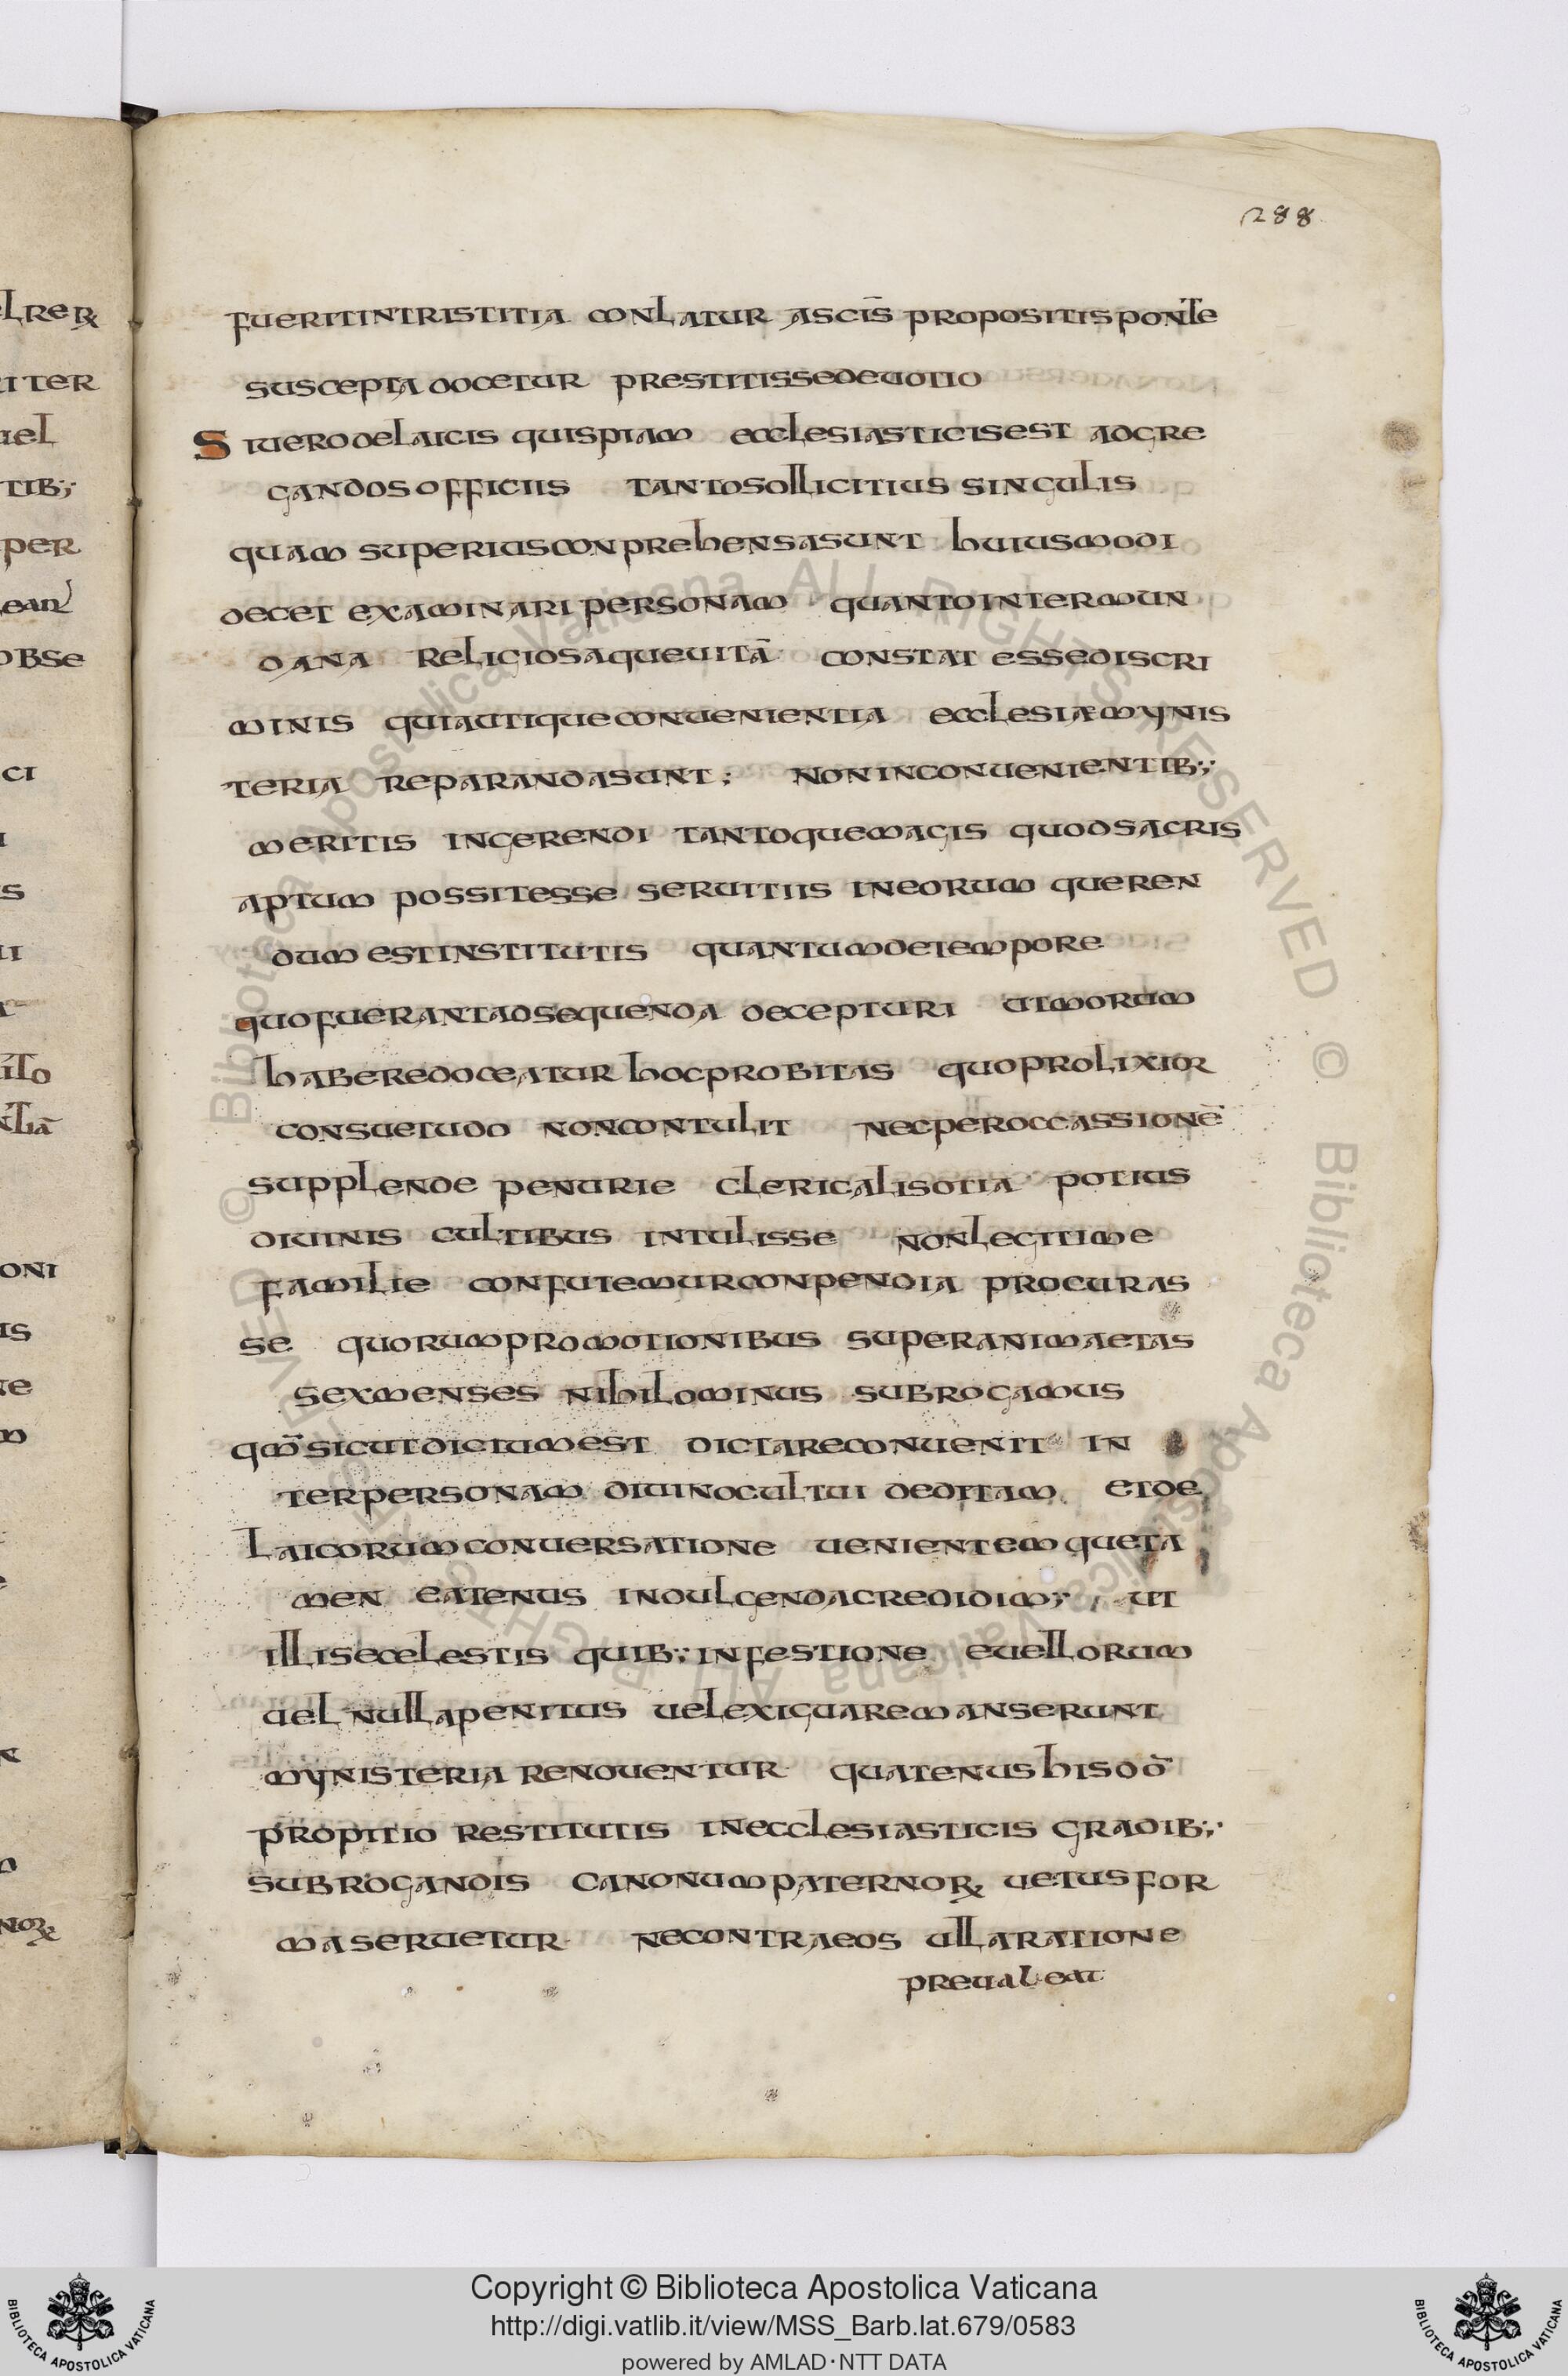 288
fueritintristitia conlatur ascīs propositisponte
suscepta docetur prestitissedeuotio
Siuerodelaicis quispiam ecclesiasticisest adgre
gandosofficiis tantosollicitius singulis
quam superiusconprehensasunt huiusmodi
decet examinari personam quantointermun
dana religiosaqueuitā constat essediscri
minis quiautiqueconuenientia ecclesiæmynis
teria reparandasunt; noninconuenientib;;
meritis ingerendi tantoquemagis quodsacris
aptum possitesse seruitiis ineorum queren
dum estinstitutis quantumdetempore
quofuerantadsequenda decepturi uimorum
haberedoceatur hocprobitas quoprolixior
consuetudo noncontulit necperoccassionē
supplende penurie clericalisotia potius
diuinis cultibus intulisse nonlegitime
familie confutemurconpendia procuras
se quorumpromotionibus superanimaetas
sexmenses nihilominus subrogamus
qm̄sicutdictumest dictareconuenit in
terpersonam diuinocultui deditam etde
Laicorumconuersatione uenientemqueta
men eatenus indulgendacredidim; ut
illisecclestis quib;;infestione euellorum
uel nullapenitus uelexiguaremanserunt
mynisteria renouentur quatenushisdō
propitio restitutis inecclesiasticis gradib;;
subrogandis canonumpaternoꝝ uetusfor
maseruetur necontraeos ullaratione
preualeat
elreꝝ
riter
uel
tib;;
per
ean
obse
ci
s
ui
ito
ntiā
oni
is
noꝝ
Copyright © Biblioteca Apostolica Vaticana
http://digi.vatlib.it/view/MSS_Barb.lat.679/0583
powered by AMLAD·NTT DATA
BIBLIOTECA APOSTOLICA VATICANA
BIBLIOTECA APOSTOLICA VATICANA
© Biblioteca Apostolica Vaticana ALL RIGHTS RESERVED © Biblioteca Apostolica Vaticana ALL RIGHTS RESERVED